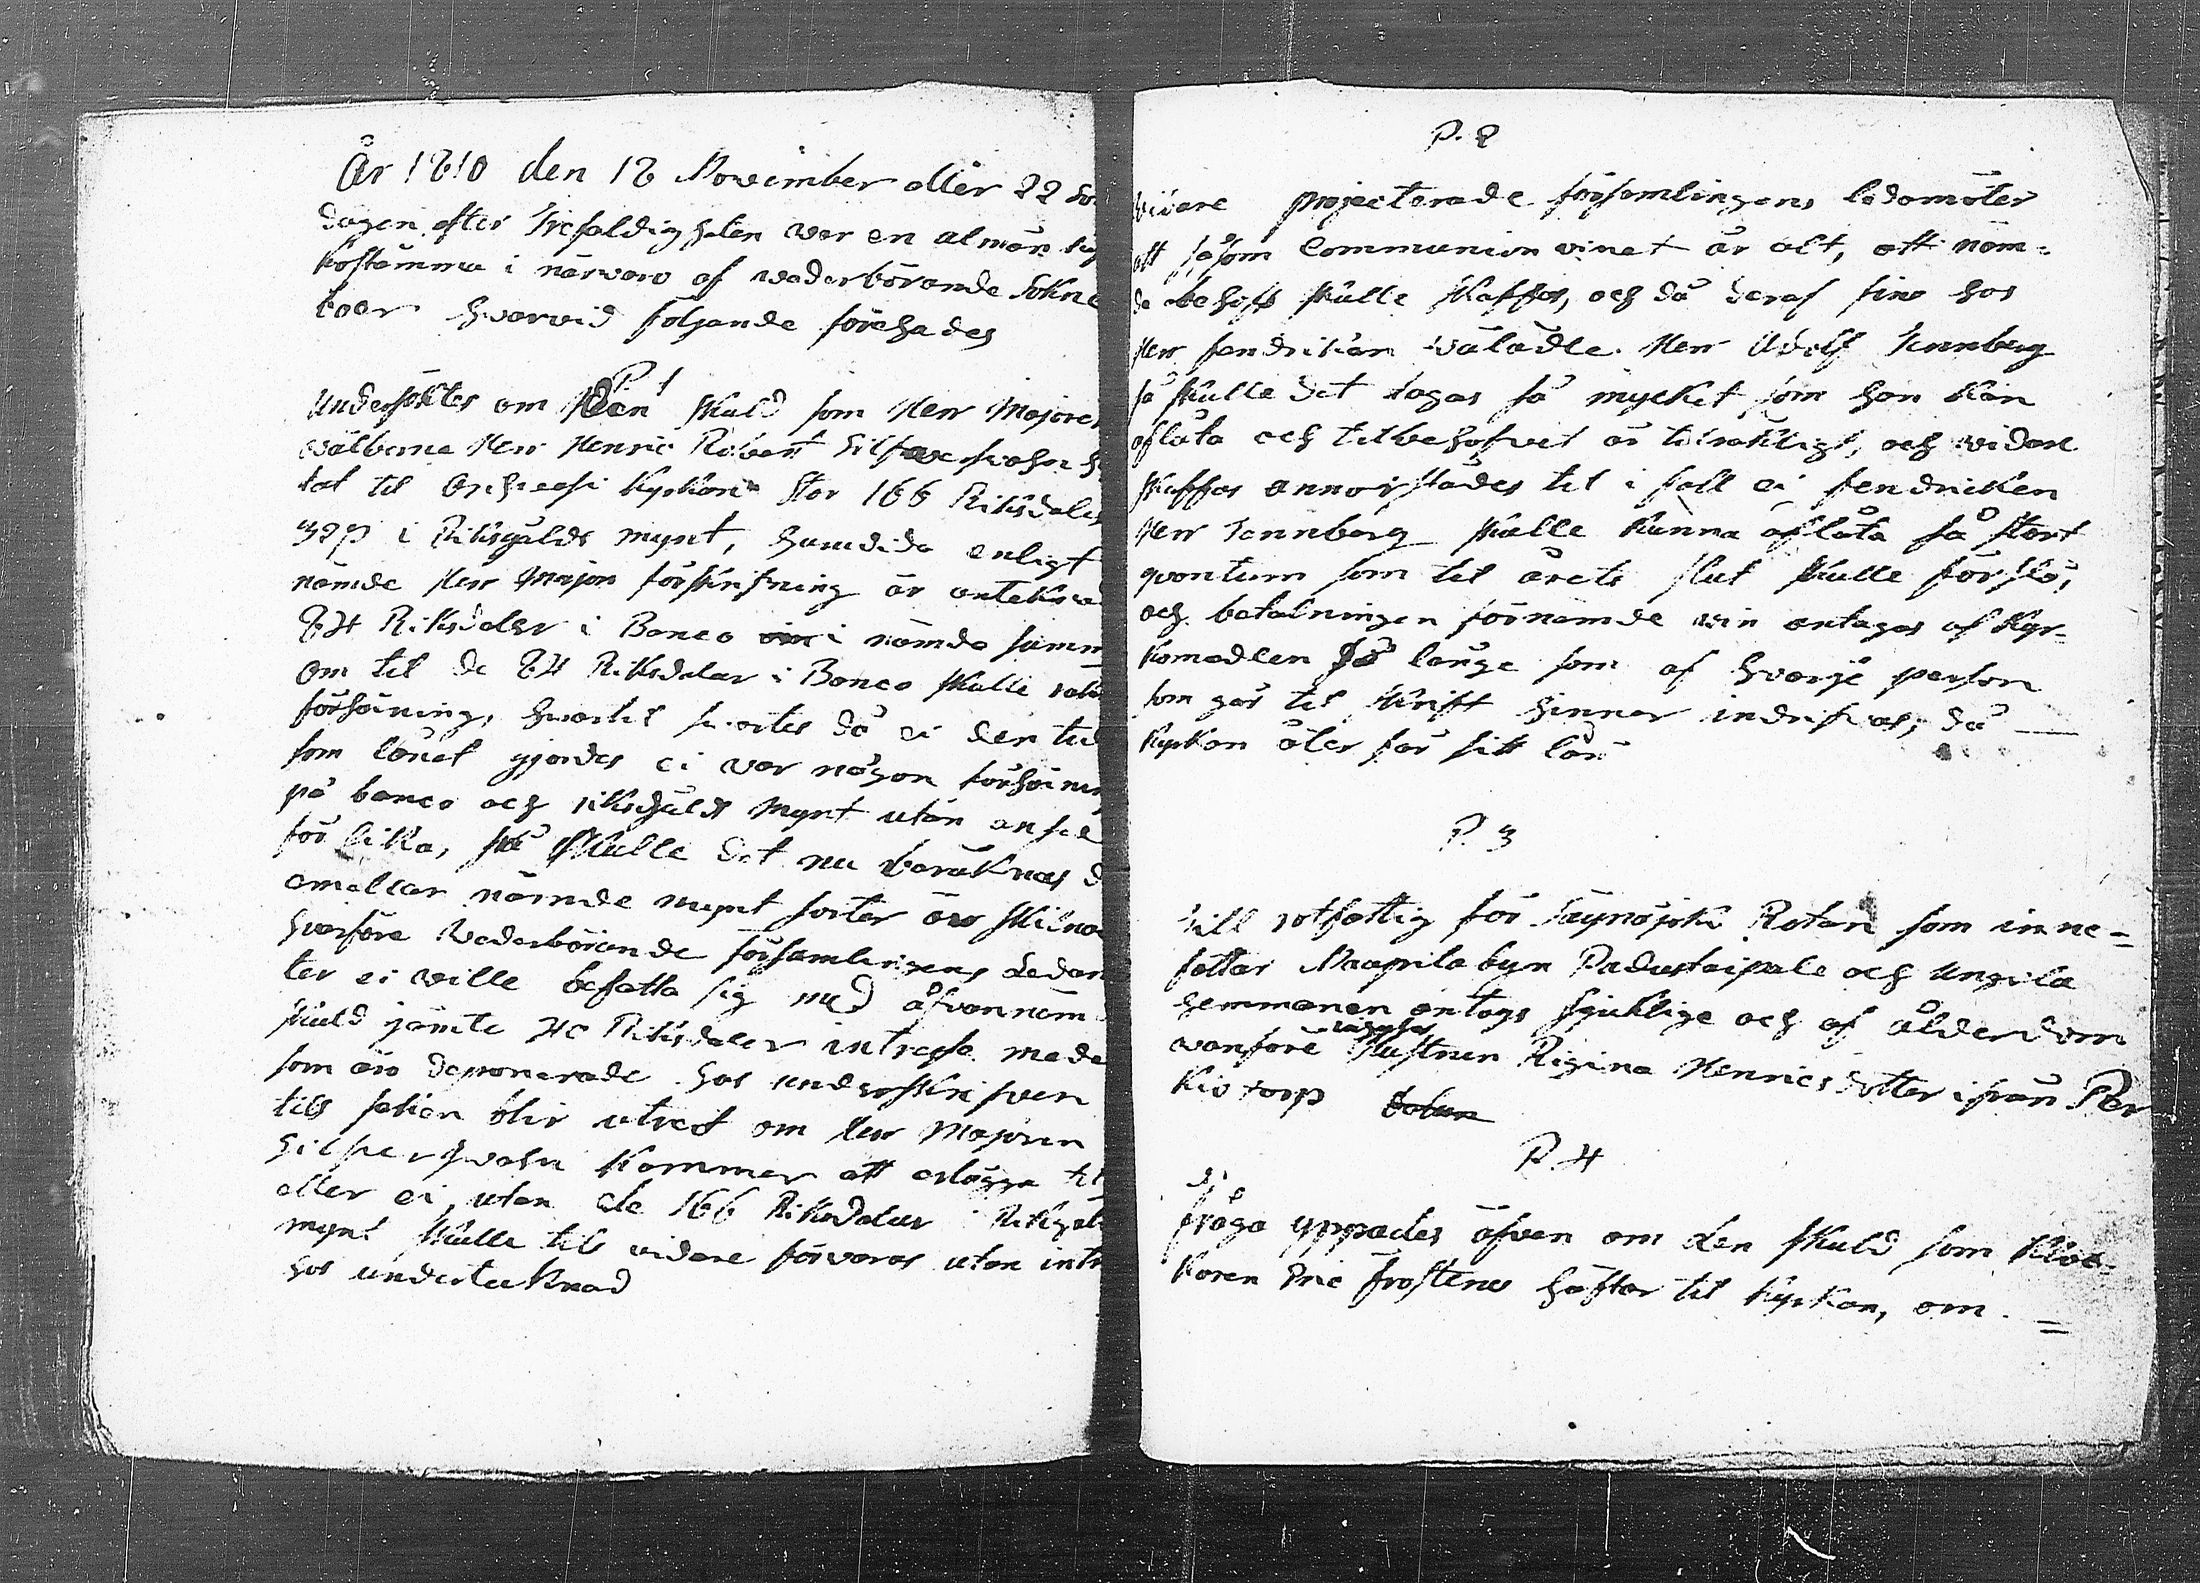 År 1810 den 18 November eller 22 Sön
dagen efter Trefaldigheten var en almän kyr
kostämma i närvaro af wederbörande Sokne
boer hvarvid följande förehades
P. 1
Undersöktes om Den skuld som Herr Majoren
wälborne Herr Henric Robert
tat til kyrkan stor 166 Riksdaler
32 p i Riksgälds mynt, hurudida enligt
nämde Herr Major förskrifning är anteknad
84 Riksdaler i Banco i nämde summ
om til de 84 Riksdaler i Banco skulle
förhöining, hvartil svartes då ei den tid
som lånet gjordes ei var någon förhöining
på banco och riksgälds mynt utan ansed
för lika, så skulle det nu beräknas d
emellan nämde mynt sorter äro skilnad
hvarföre Wederbörande församlingens Ledam
ter ei wille befatta sig med åfvannäm
skuld jämte 40 Riksdaler intresse mede
som äro deponerade hos underskrifven
tils saken blir utredt om Herr Majoren
kommer att erlägga til
eller ei, utan de 166 Riksdaler i Riksgäl
mynt skulle tils vidare förvaras utan intr
hos undertecknad
P. 2
vidare projecterade församlingens ledamöter
att såsom Communion vinet är alt, att näm-
de behof skulle skaffas, och då deraf fins hos
Herr fendriken wälädle Herr Adolf Tennberg
så skulle det tagas så mycket som han kan
aflåta och tilbehofvet är tilräkligt, och vidare
skaffas annorstädes til i fall ei fendricken
Herr Tennberg skulle kunna aflåta så stort
qvantum som til årets slut skulle förslå,
och betalningen förnämde vin antages af Kyr-
komedlen så länge som af hvarje person
som går til skrift hinner indrifvas, då
kyrkan åter får sitt lån
P. 3
Till rotfattig för Säynäjoki Rotan som inne-
fattar Maapila byn Padustaipale och Ungila
hemmanen antogs sjuklige och af ålderdom
wanföre Hustrun Regina Henrics dotter ifrån Per
kiö torp
P. 4
fråga yppades äfven om den skuld som Kloc-
karen Eric Frostenus häftar til Kyrkan, om